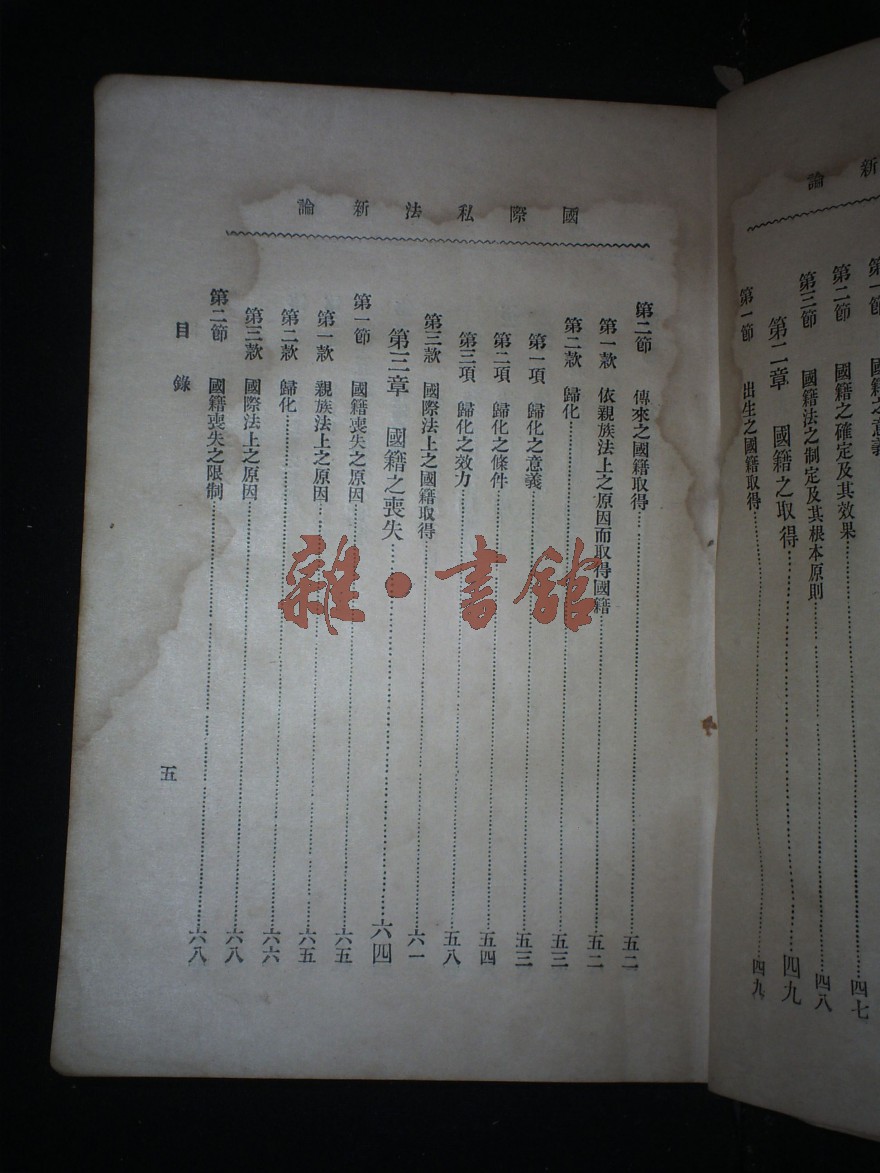 新論
第一節 國籍之意義
第二節 國籍之確定及其效果 四七
第三節 國籍法之制定及其根本原則 四八
第二章 國籍之取得 四九
第一節 出生之國籍取得 四九
國際私法新論
第二節 傳來之國籍取得 五二
第一款 依親族法上之原因而取得國籍 五二
第二款 歸化 五三
第一項 歸化之意義 五三
第二項 歸化之條件 五四
第三項 歸化之效力 五八
第三款 國際法上之國籍取得 六一
第三章 國籍之喪失 六四
第一節 國籍喪失之原因 六五
第一款 親族法上之原因 六五
第二款 歸化 六六
第三款 國際法上之原因 六八
第二節 國籍喪失之限制 六八
目錄 五
雜·書館